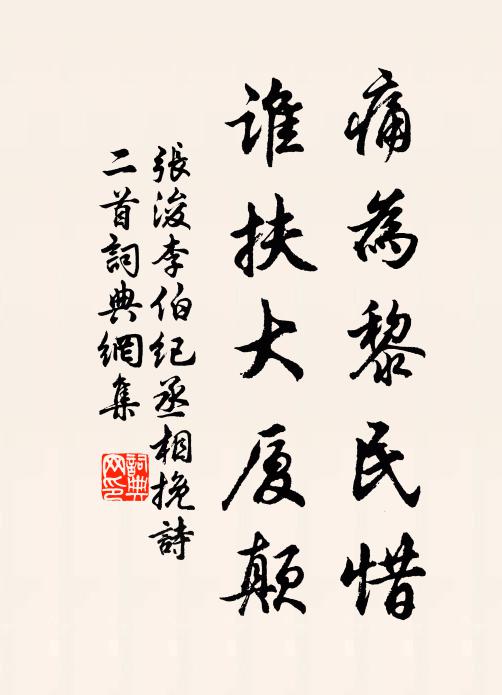 痛為黎民惜
誰扶大厦顛
張浚李伯紀丞相挽詩
二首詞典網集
詞典
网印